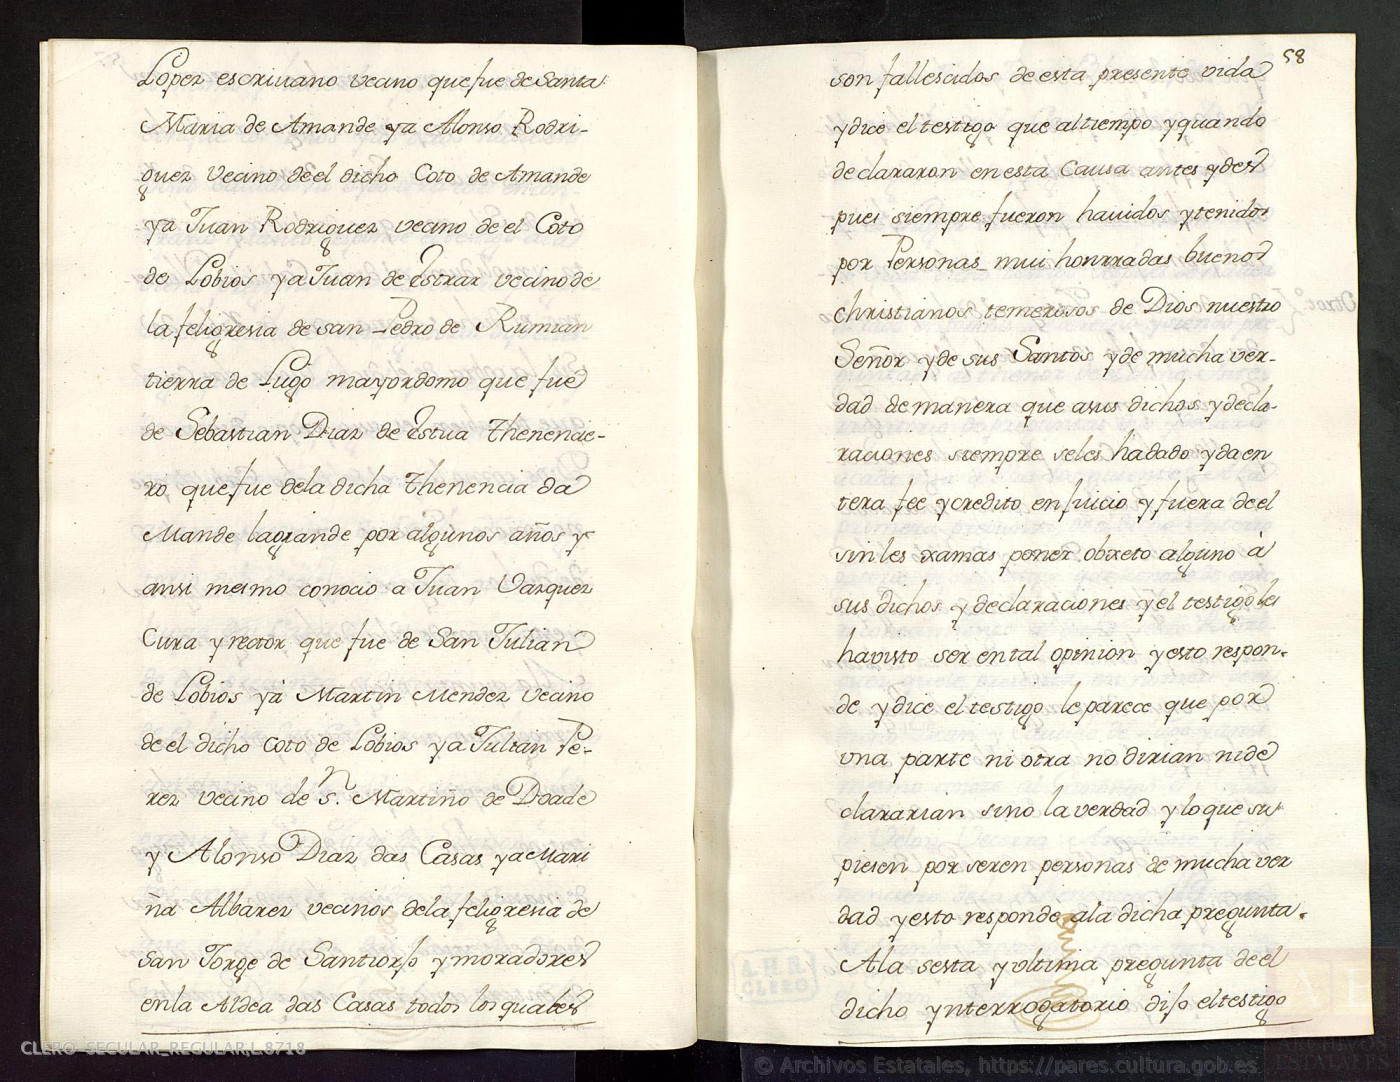 Lopez escriuano vecino que fue de Santa
Maria de Amande ya Alonso Rodri-
guez vecino de el dicho Coto de Amande
ya Juan Rodriguez vecino de el Coto
de Lobios ya Juan de Estrar vecino de
la feligresia de san Pedro de Rumian
tierra de Lugo mayordomo que fue
de Sebastian Diaz de Estua Thenencie-
ro que fue dela dicha Thenencia da
Mande lagrande por algunos años y
ansi mesmo conocio a Juan Vazquez
Cura y rector que fue de San Julian
de Lobios ya Martin Mendez vecino
de el dicho coto de Lobios ya Julian Pe-
rez vecino de S.n Martiño de Doade
y Alonso Diaz das Casas ya Mari
ña Albarez vecinos dela feligresia de
San Jorge de Santiorjo y moradores
enla Aldea das Casas todos los quales
58
son fallescidos de esta presente vida
y dice el testigo que al tiempo y quando
declararon en esta Causa antes y des
pues siempre fueron hauidos y tenidos
por Personas mui honrradas buenos
christianos temerosos de Dios nuestro
Señor y de sus Santos y de mucha ver-
dad de manera que asus dichos y decla-
raciones siempre seles ha dado y da en
tera fee y credito en juicio y fuera de el
sinles xamas poner obxeto alguno à
sus dichos y declaraciones y el testigo les
ha visto ser en tal opinion y esto respon-
de y dice el testigo le parece que por
una parte ni otra no dirian ni de
clararian sino la verdad y lo que su
piesen por seren personas de mucha ver
dad y esto responde ala dicha pregunta.
Ala sesta y vltima pregunta de el
dicho ynterrogatorio dijo el testigo
A.H.N.
CLERO
CLERO_SECULAR_REGULAR,L.8718
© Archivos Estatales, https://pares.cultura.gob.es
ARCHIVOS
ESTATALES